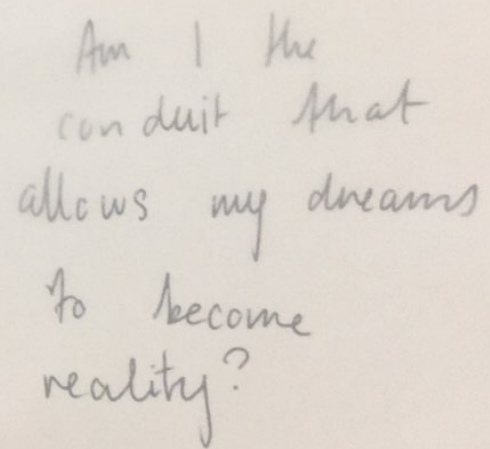 Am I the
conduit that
allows my dreams
to become
reality?